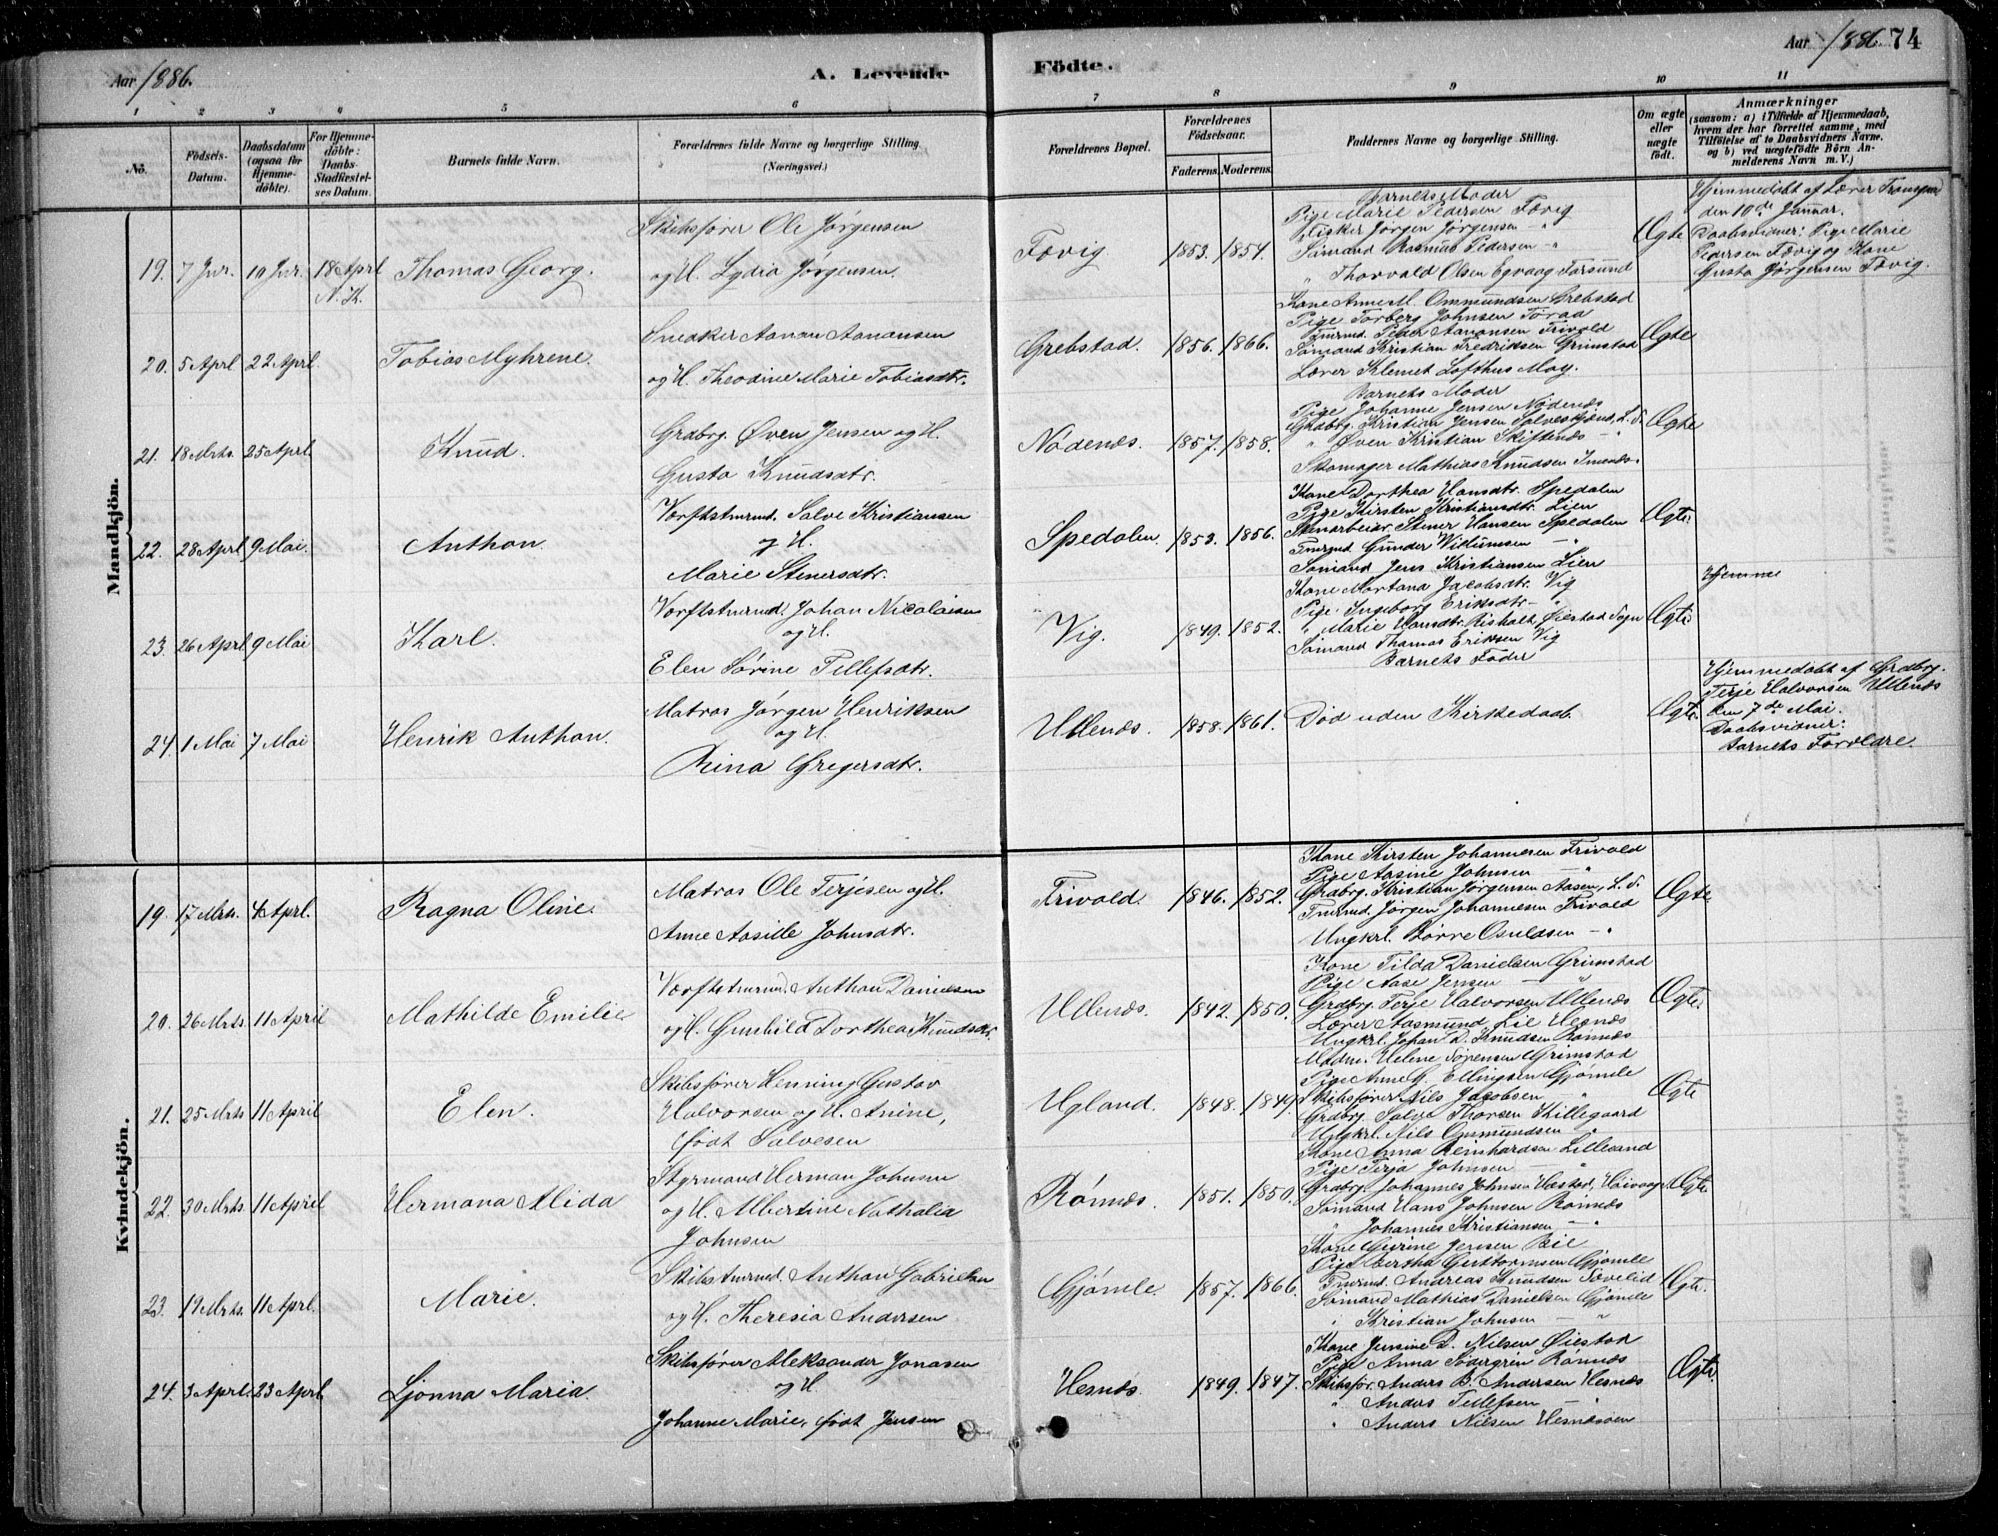 Aar 1886.
A. Levende
Födte.
Aar 1886. 74
1 2 3 4 5 6 7 8 9 10 11
No.
Födsels-Datum.
Daabsdatum (ogsaa for Hjemmedöbte).
For Hjemmedöbte: Daabs-Stadfæstelses Datum.
Barnets fulde Navn.
Forældrenes fulde Navne og borgerlige Stilling.
(Næringsvei.)
Forældrenes Bopæl.
Forældrenes Födselsaar.
Faderens. Moderens.
Faddernes Navne og borgerlige Stilling.
Om ægte eller uægte födt.
Anmærkninger
(saasom: a) i Tilfælde af Hjemmedaab, hvem der har forrettet samme, med Tilföielse af to Daabsvidners Navne. og b) ved uægtefödte Börn Anmelderens Navn m. V.)
Mandkjön.
19. 7 Jnr. 10 Jnr. 18 April N. K.
Thomas Georg.
Skibsfører Ole Jørgensen
og H. Lydia Jørgensen,
Fævig. 1853. 1854.
Barnets Moder
Pige Marie Pedersen Fævig
Fisker Jørgen Jørgensen — "
Sømand Rasmus Pedersen — "
" Thorvald Olsen Egvaag Farsund
Ægte
Hjemmedøbt af Lærer
den 10de Januar.
Daabsvidner: Pige Marie
Pedersen Fævig og Kone
Gusta Jørgensen Fævig.
20. 5 Aprl 22 Aprl
Tobias Myhrene.
Snedker Aanon Aanonsen
og H. Theodine Marie Tobiasdtr.
Grebstad. 1856. 1866.
Kone Anne M. Ommundsen Grebstad
Pige Torberg Johnsen Torad
Tmrmd. Peder Aanonsen Trivold
Sømand Kristian Fredriksen Grimstad
Lærer Klemet Lofthus Moy.
Ægte
21. 18 Mrts. 25 Aprl.
Knud.
Grdbrg. Øven Jensen og H.
Gusta Knudsdtr.
Nødenæs. 1857. 1858.
Barnets Moder
Pige Johanne Jensen Nødenæs
Grdbrg. Kristian Jensen Salveskjend, L. S.
" Øven Kristian Skiftenæs — "
Skomager Mathias Knudsen Imenæs.
Ægte
22. 28 Aprl 9 Mai.
Anthon.
Værftstmrmd. Salve Kristiansen
og H.
Marie Stenersdtr.
Spedalen. 1853. 1856.
Kone Dorthea Hansdtr. Spedalen
Pige Kirsten Kristiansdtr. Lien
Stenarbeider Stener Hansen Spedalen
Tmrmd. Gunder Willumsen — "
Sømand Jens Kristiansen Lien
Ægte
23. 26 Aprl 9 Mai
Karl.
Værftstmrmd. Johan Nicolaisen
og H.
Elen Sørine Tellefsdtr.
Vig. 1849. 1852.
Kone Martana Jacobsdtr. Vig
Pige Ingeborg Eriksdtr — "
" Marie Hansdtr. Risholt, Øiestad Sogn
Sømand Thomas Eriksen Vig
Barnets Fader
Ægte
Hjemme
24. 1 Mai 7 Mai
Henrik Anthon.
Matros Jørgen Henriksen
og H.
Rina Gregersdtr.
Ullenæs. 1858. 1861.
Død uden Kirkedaab.
Ægte
Hjemmedøbt af Grdbrg.
Terje Halvorsen Ullenæs
den 7de Mai.
Daabsvidner:
Barnets Forældre.
Kvindekjön.
19. 17 Mrts. 4 Aprl.
Ragna Oline.
Matros Ole Terjesen og H.
Anne Aasille Johnsdtr.
Trivold. 1846. 1852.
Kone Kirsten Johannesen Trivold
Pige Aasine Johnsen — "
Grdbrg. Kristian Jørgensen Aasen, L. S.
Tmrmd. Jørgen Johannesen Trivold
Ungkrl. Børre Osuldsen — "
Ægte
20. 26 Mrts. 11 April
Mathilde Emilie
Værftstmrmd. Anthon Danielsen
og H. Gunhild Dorthea Knudsdtr.
Ullenæs. 1842. 1850.
Kone Tilda Danielsen Grimstad
Pige Aase Jensen "
Grdbrg. Terje Halvorsen Ullenæs
Lærer Aasmund Lie Hesnæs
Ungkrl. Johan D. Knudsen Rønnæs
Ægte.
21. 25 Mrts. 11 April
Elen.
Skibsfører Henning Gustav
Halvorsen og H. Anine,
født Salvesen
Ugland. 1848. 1849.
Mdm. Helene Sørensen Grimstad
Pige Anne G. Ellingsen Gjømle
Skibsfører Nils Jacobsen "
Grdbrg. Salve Thorsen Killegaard
Ungkrl. Nils Ommundsen "
Ægte
22. 30 Mrts. 11 April
Hermana Alida
Styrmand Herman Johnsen
og H. Albertine Nathalia
Johnsen
Rønnæs. 1851. 1850.
Kone Anna Reinhardsen Lillesand
Pige Terja Johnsen — "
Grdbrg. Johannes Johnsen Hæstad, Høivaag
Sømand Hans Johnsen Rønnæs
" Johannes Kristiansen — "
Ægte.
23. 19 Mrts. 11 Aprl.
Marie.
Skibstmrmd. Anthon Gabrielsen
og H. Theresia Andersen
Gjømle. 1857. 1866.
Kone Gurine Jensen Bie
Pige Bertha Guttormsen Gjømle
Tmrmd. Andreas Knudsen Tævelid
Sømand Mathias Danielsen Gjømle
" Kristian Johnsen — "
Ægte.
24. 3 Aprl. 23 Aprl.
Ljonna Maria.
Skibsfører Aleksander Jonasen
og H
Johanne Marie, født Jensen
Hesnæs. 1849. 1847.
Kone Jensine D. Nilsen Øiestad
Pige Anna Södergrin Rønnæs
Skibsfør. Anders B. Andersen Hesnæs
" Anders Tellefsen "
" Anders Nilsen Hesnæsøen
Ægte.